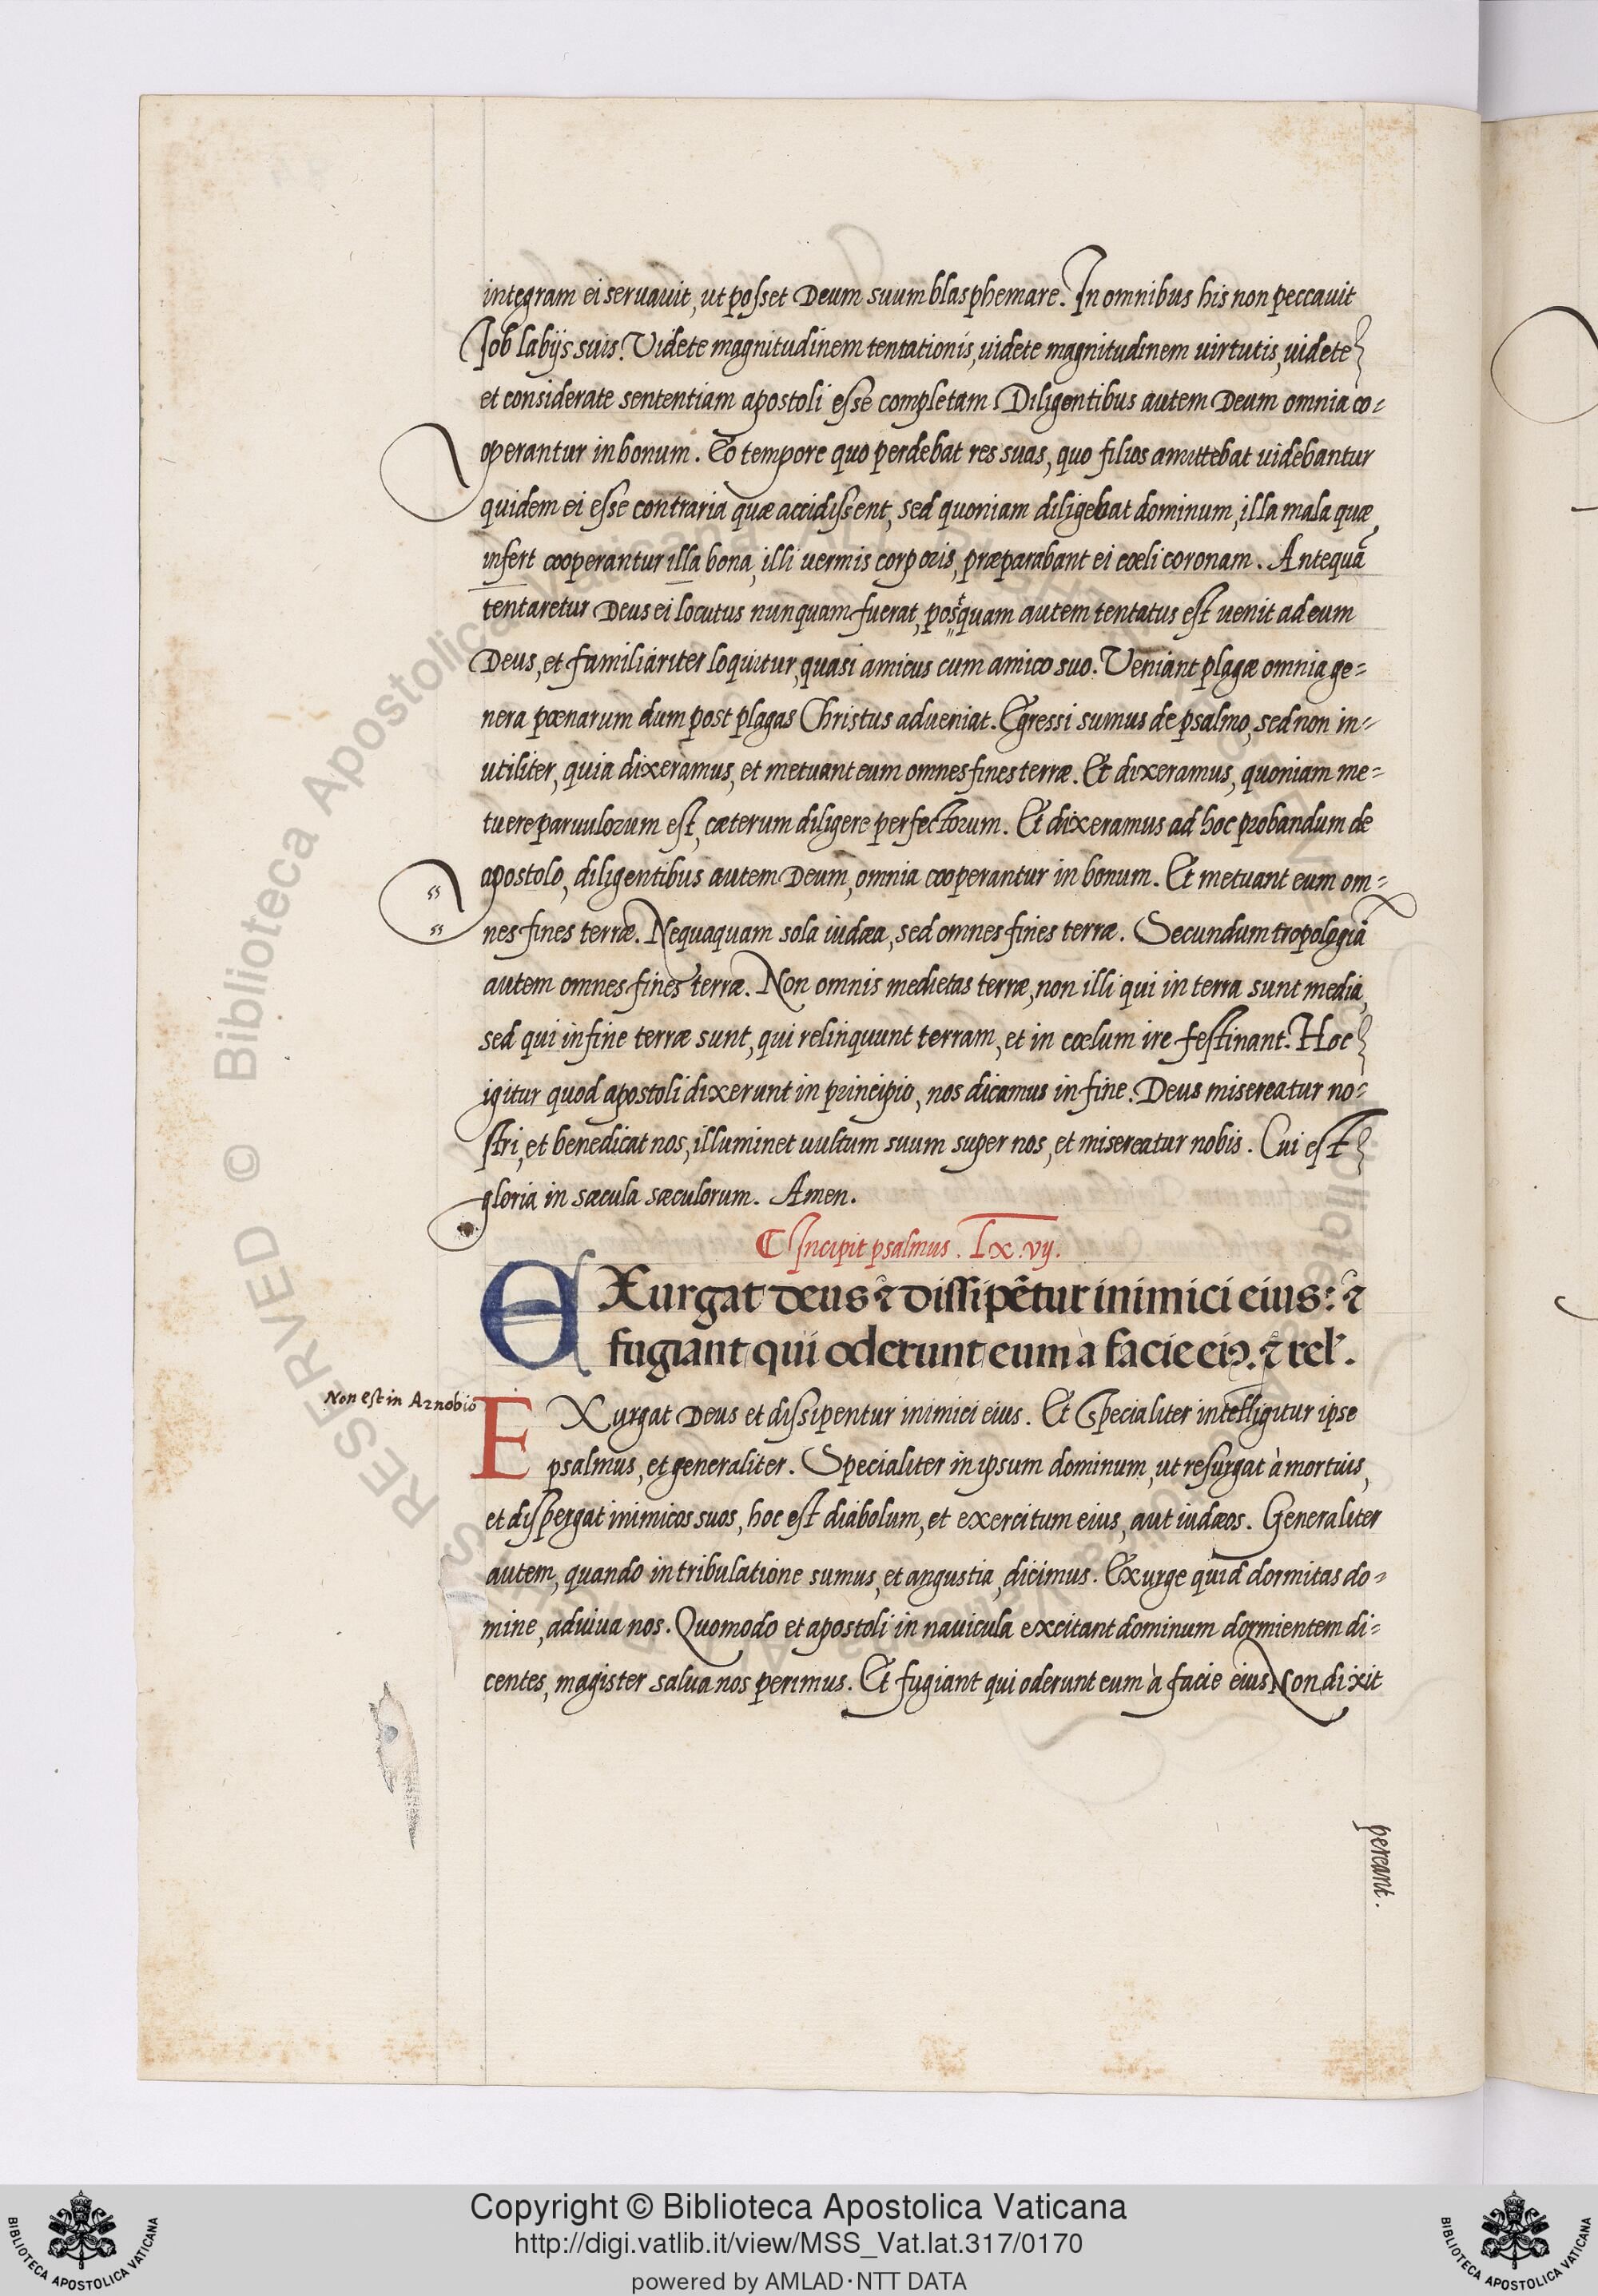 integram ei seruauit, ut posset Deum suum blasphemare. In omnibus his non peccauit
Iob labijs suis. Videte magnitudinem tentationis, uidete magnitudinem uirtutis, uidete
et considerate sententiam apostoli esse completam. Diligentibus autem Deum omnia co-
operantur in bonum. Eo tempore quo perdebat res suas, quo filios amittebat uidebantur
quidem ei esse contraria quæ accidissent, sed quoniam diligebat dominum, illa mala quæ
infert cooperantur illa bona, illi uermis corporis, præparabant ei cœli coronam. Antequã
tentaretur Deus ei locutus nunquam fuerat, postquam autem tentatus est uenit ad eum
Deus, et familiariter loquitur, quasi amicus cum amico suo. Veniant plagæ omnia ge-
nera pœnarum dum post plagas Christus adueniat. Egressi sumus de psalmo, sed non in-
utiliter, quia dixeramus, et metuant eum omnes fines terræ. Et dixeramus, quoniam me-
tuere paruulorum est, cæterum diligere perfectorum. Et dixeramus ad hoc probandum de
apostolo, diligentibus autem Deum, omnia cooperantur in bonum. Et metuant eum om-
nes fines terræ. Nequaquam sola iudæa, sed omnes fines terræ. Secundum tropologiã
autem omnes fines terræ. Non omnis medietas terræ, non illi qui in terra sunt media,
sed qui in fine terræ sunt, qui relinquunt terram, et in cœlum ire festinant. Hoc
igitur quod apostoli dixerunt in principio, nos dicamus in fine. Deus misereatur no-
stri, et benedicat nos, illuminet uultum suum super nos, et misereatur nobis. Cui est
gloria in sæcula sæculorum. Amen.
Incipit psalmus. Lx.vij.
EXurgat deus ⁊ dissipẽtur inimici eius: ⁊
fugiant qui oderunt eum à facie eiꝰ. ⁊ rel.
Non est in Arnobio
EXurgat Deus et dissipentur inimici eius. Et specialiter intelligitur ipse
psalmus, et generaliter. Specialiter in ipsum dominum, ut resurgat à mortuis,
et dispergat inimicos suos, hoc est diabolum, et exercitum eius, aut iudæos. Generaliter
autem, quando in tribulatione sumus, et angustia, dicimus. Exurge quid dormitas do-
mine, adiuua nos. Quomodo et apostoli in nauicula excitant dominum dormientem di-
centes, magister salua nos perimus. Et fugiant qui oderunt eum à facie eius Non dixit
pereant.
RESERVED © Biblioteca Apostolica Vaticana
Copyright © Biblioteca Apostolica Vaticana
http://digi.vatlib.it/view/MSS_Vat.lat.317/0170
powered by AMLAD·NTT DATA
BIBLIOTECA APOSTOLICA VATICANA
BIBLIOTECA APOSTOLICA VATICANA